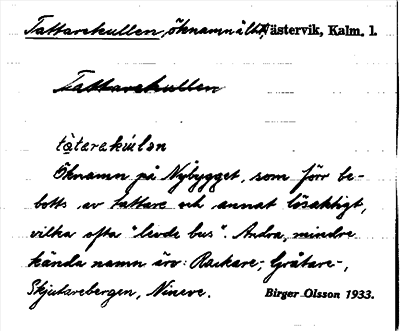 Tattarekullen, öknamn å lht, Västervik, Kalm. l.
Tattarekullen
tàtarakúlen
Öknamn på Nybygget, som förr be-
botts av tattare och annat lösaktigt,
vilka ofta "levde bus". Andra, mindre
kända namn äro: Rackare-, Gråtare-,
Skjutarebergen, Nineve. Birger Olsson 1933.